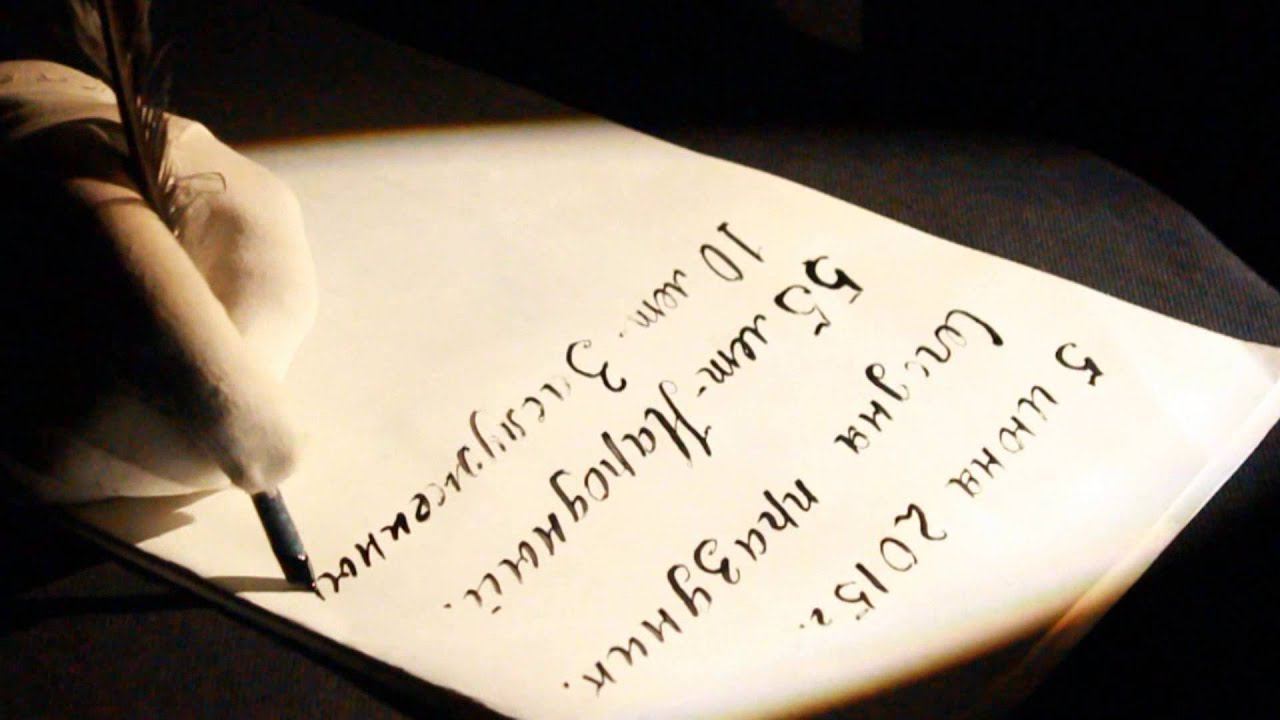 5 июня 2015г.
Сегодня праздник.
55 лет - Народный.
10 лет. Заслуженный